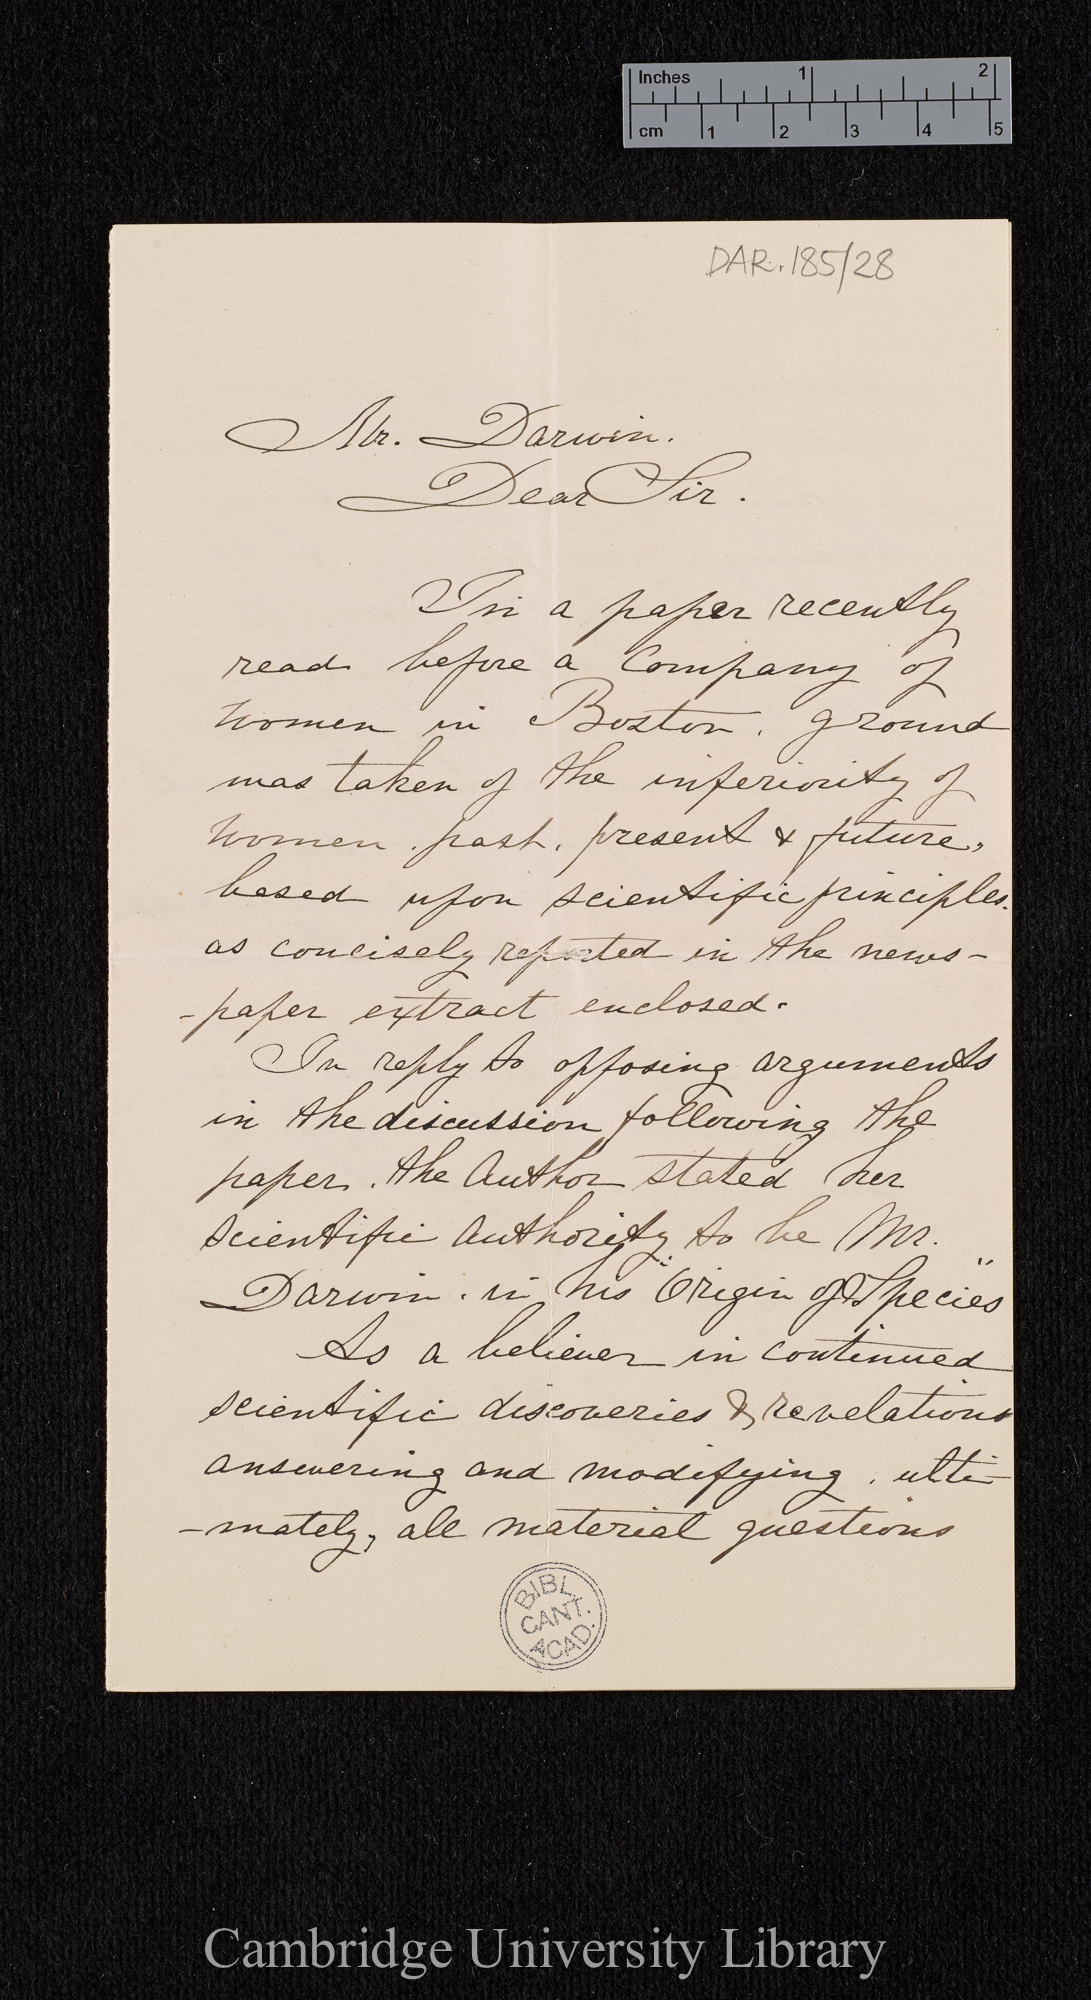 Inches 1 2
cm 1 2 3 4 5
DAR.185/28
Mr. Darwin.
Dear Sir.
In a paper recently
read before a Company of
women in Boston, ground
was taken of the inferiority of
women, past, present & future,
based upon scientific principles.
as concisely reported in the news-
-paper extract enclosed.
In reply to opposing arguments
in the discussion following the
paper, the Author stated her
scientific authority to be Mr.
Darwin. in his "Origin of Species"
As a believer in continued
scientific discoveries & revelations
answering and modifying, ulti-
-mately, all material questions
BIBL.
CANT.
ACAD.
Cambridge University Library